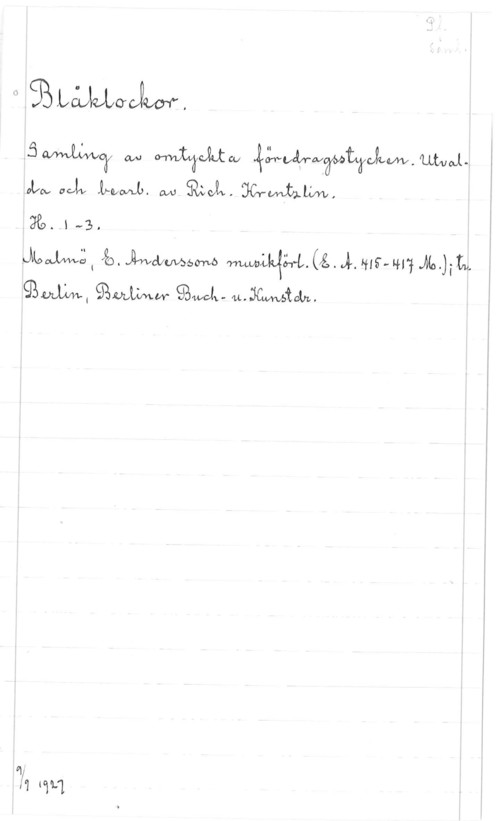 Pl.
Saml.
Blåklockor.
Samling av omtyckta föredragsstycken. Utval-
da och bearb. av Rich. Krentzlin.
H. 1-3.
Malmö, E. Anderssons musikförl. (E. A. 415-417 M.); tr.
Berlin, Berliner Buch- u. Kunstdr.
9/9 1927